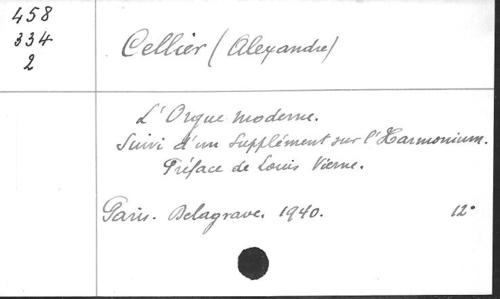 458
334
2
Cellier (Alexandre)
L'Orgue moderne.
Suivi d'un Supplément sur l'Harmonium.
Préface de Louis Vierne.
Paris. Delagrave. 1940. 12°